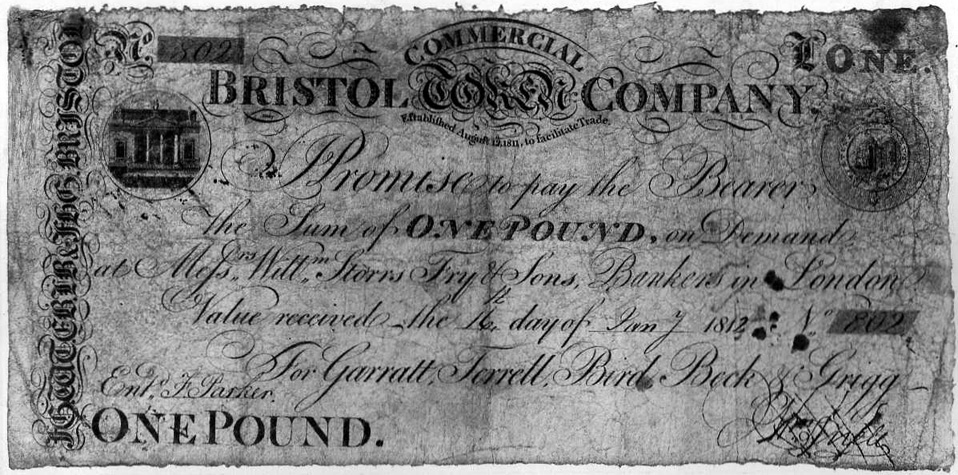 No 802
£ ONE.
COMMERCIAL
BRISTOL TOKEN COMPANY.
Established August 12, 1811, to facilitate Trade.
I Promise to pay the Bearer
the Sum of ONE POUND, on Demand
at Messrs. Willm. Storrs Fry & Sons, Bankers in London
Value received the 16th day of Jany 1812 No 802
For Garratt, Terrell, Bird Beck & Grigg
Entd. F. Parker.
ONE POUND.